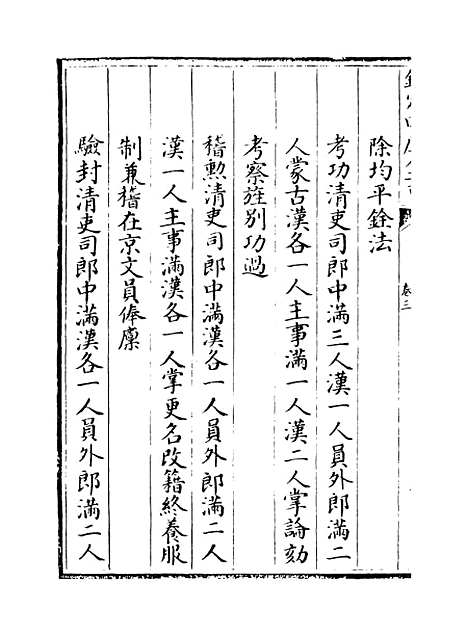 欽定四庫全書
卷三
除均平銓法
考功清吏司郎中滿三人漢一人員外郎滿二
人蒙古漢各一人主事滿一人漢二人掌論劾
考察旌別功過
稽勲清吏司郎中滿漢各一人員外郎滿二人
漢一人主事滿漢各一人掌更名改籍終養服
制兼稽在京文員俸廩
驗封清吏司郎中滿漢各一人員外郎滿二人